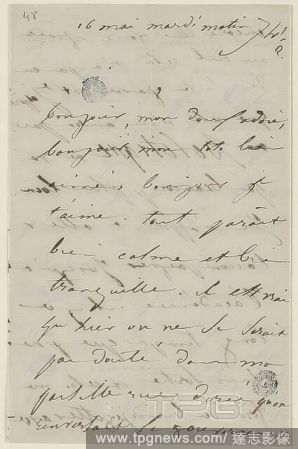 48
16 mai mardi matin 7h ½
Bonjour, mon doux adoré,
bonjour mon toto bien
aimé, bonjour je
t'aime. Tout paraît
bien calme et bien
tranquille. Il est vrai
qu'hier on ne se serait
pas douté dans mo
paisible rue qu'on
envahissait
TPG
www.tpgnews.com / 達志影像